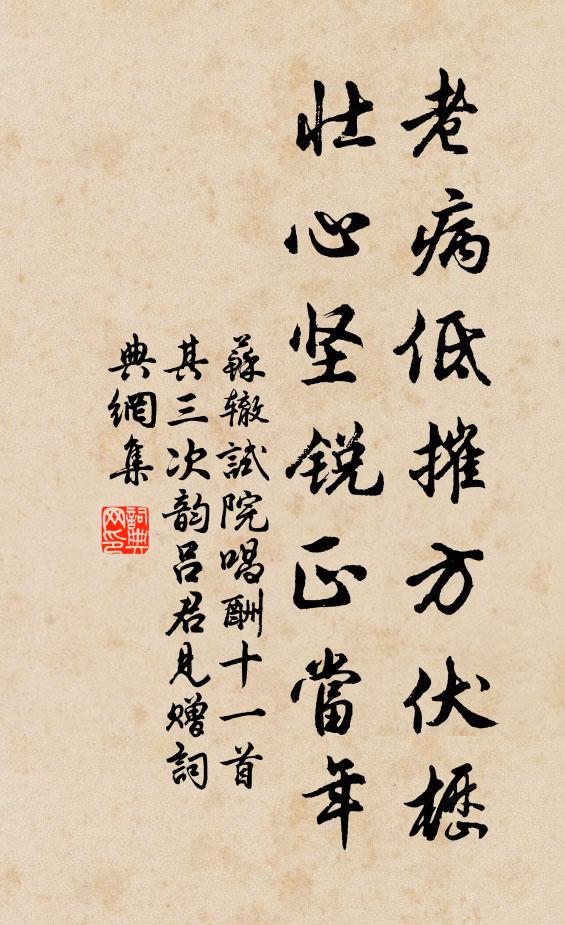 老病低摧方伏櫪
壮心坚锐正當年
蘇辙試院唱酬十一首
其三次韵吕君見赠詞
典網集
詞典网印